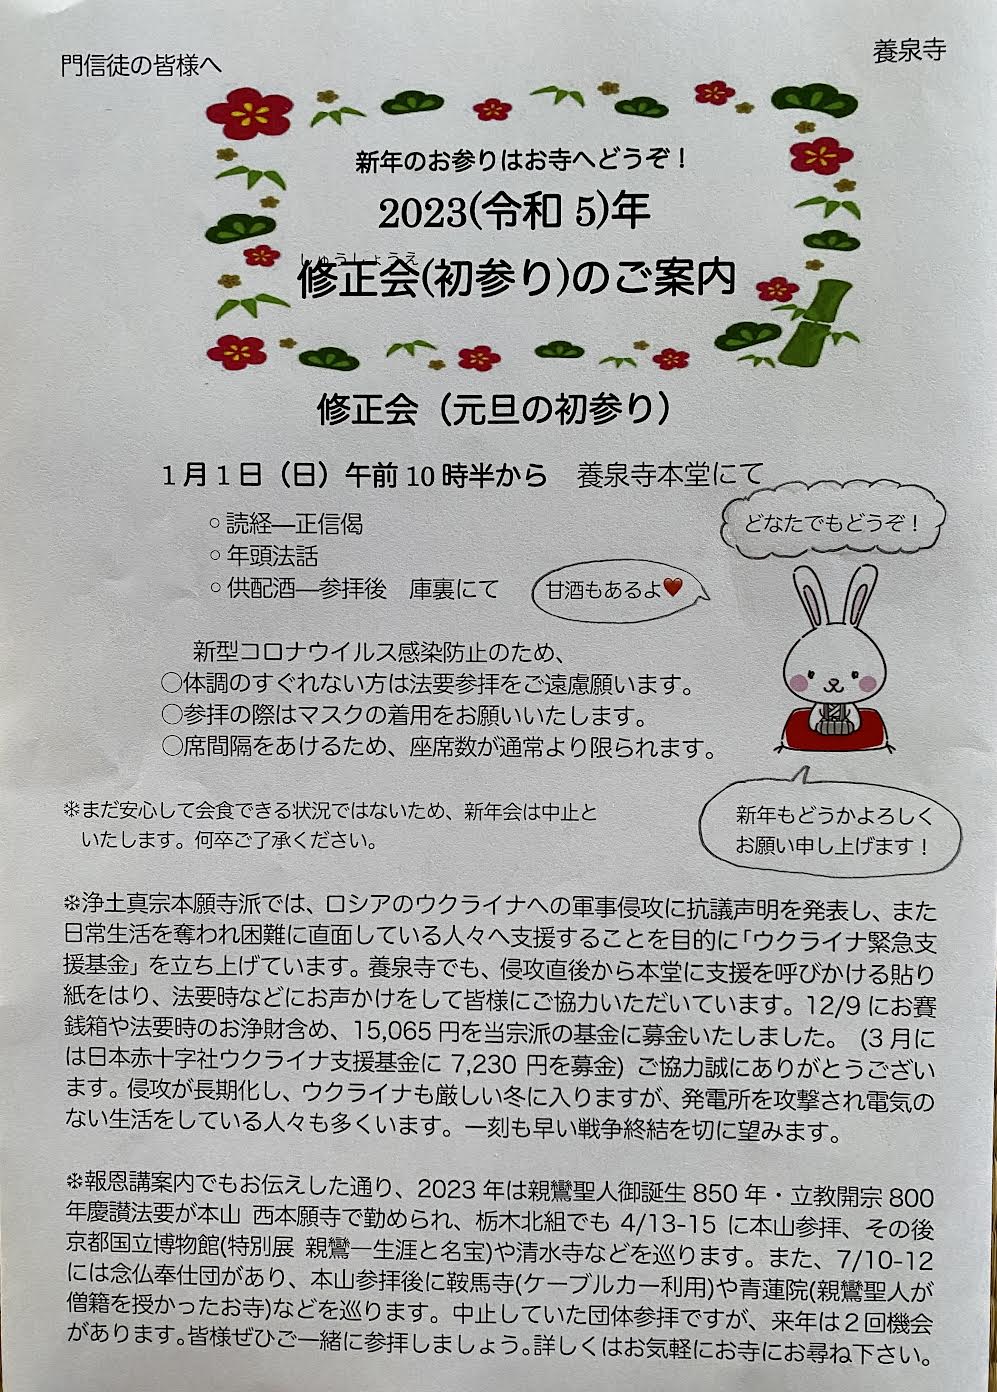 門信徒の皆様へ
養泉寺
新年のお参りはお寺へどうぞ！
2023(令和 5)年
しゅうしょうえ
修正会(初参り)のご案内
修正会（元旦の初参り）
1月1日（日）午前 10 時半から　養泉寺本堂にて
どなたでもどうぞ！
○ 読経―正信偈
○ 年頭法話
○ 供配酒―参拝後　庫裏にて
甘酒もあるよ♥
新型コロナウイルス感染防止のため、
○体調のすぐれない方は法要参拝をご遠慮願います。
○参拝の際はマスクの着用をお願いいたします。
○席間隔をあけるため、座席数が通常より限られます。
❄まだ安心して会食できる状況ではないため、新年会は中止と
いたします。何卒ご了承ください。
新年もどうかよろしく
お願い申し上げます！
❄浄土真宗本願寺派では、ロシアのウクライナへの軍事侵攻に抗議声明を発表し、また
日常生活を奪われ困難に直面している人々へ支援することを目的に「ウクライナ緊急支
援基金」を立ち上げています。養泉寺でも、侵攻直後から本堂に支援を呼びかける貼り
紙をはり、法要時などにお声かけをして皆様にご協力いただいています。12/9 にお賽
銭箱や法要時のお浄財含め、15,065 円を当宗派の基金に募金いたしました。 (3 月に
は日本赤十字社ウクライナ支援基金に 7,230 円を募金) ご協力誠にありがとうござい
ます。侵攻が長期化し、ウクライナも厳しい冬に入りますが、発電所を攻撃され電気の
ない生活をしている人々も多くいます。一刻も早い戦争終結を切に望みます。
❄報恩講案内でもお伝えした通り、2023 年は親鸞聖人御誕生 850 年・立教開宗 800
年慶讃法要が本山 西本願寺で勤められ、栃木北組でも 4/13-15 に本山参拝、その後
京都国立博物館(特別展 親鸞―生涯と名宝)や清水寺などを巡ります。また、7/10-12
には念仏奉仕団があり、本山参拝後に鞍馬寺(ケーブルカー利用)や青蓮院(親鸞聖人が
僧籍を授かったお寺)などを巡ります。中止していた団体参拝ですが、来年は２回機会
があります。皆様ぜひご一緒に参拝しましょう。詳しくはお気軽にお寺にお尋ね下さい。